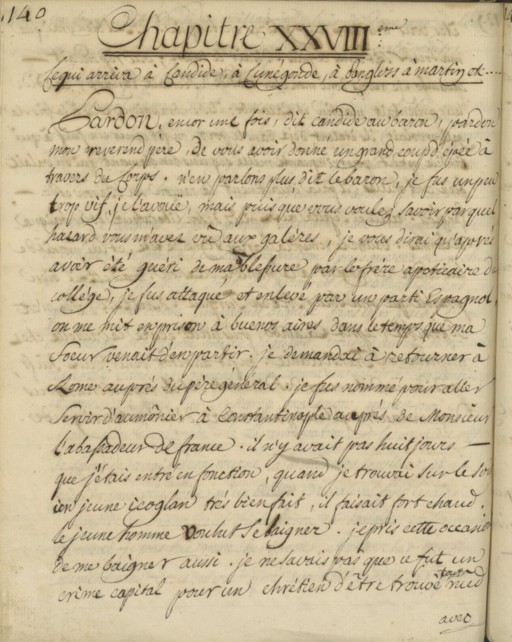 140
Chapitre XXVIII eme
Ce qui arriva à Candide, à Cunégonde, à Pangloss à martin et....
Pardon, encor une fois, dit candide au baron, pardon
mon reverend père, de vous avoir donné un grand coup d'épée à
travers de Corps. n'en parlons plus, dit le baron, je fus un peu
trop vif, je l'avoüe, mais puis que vous voulez savoir par quel
hazard vous m'avez vû aux galères, je vous dirai qu'apres
avoir été guéri de ma blessure par le frère apoticaire du
collége, je fus attaqué et enlevé par un parti Espagnol,
on me mit en prison à buenos aires dans le temps que ma
Soeur venait d'en partir. je demandai à retourner à
Rome auprès du père général. je fus nommé pour aller
Servir d'aumônier à Constantinople auprés de Monsieur
l'abassadeur de france. il n'y avait pas huit jours —
que j'étais entré en fonction, quand je trouvai sur le soir
un jeune icoglan trés bien fait, il faisait fort chaud.
le jeune homme voulut se baigner. je pris cette occasion
de me baigner aussi. je ne savais pas que ce fut un
crime capital pour un chrétien d'être trouvé tout nud
avec